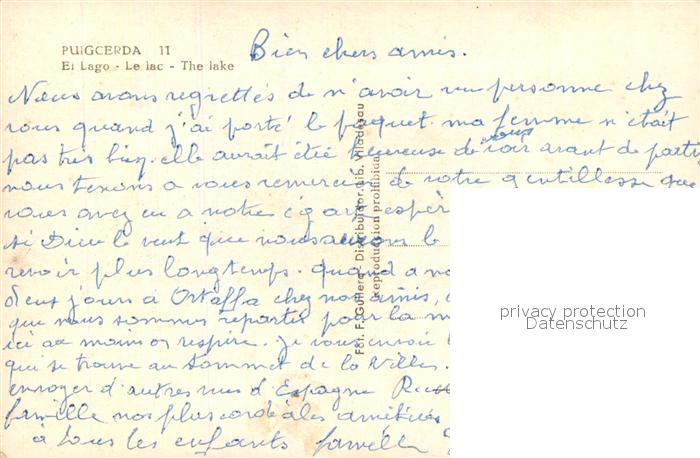 PUIGCERDA 11
El Lago - Le lac - The lake
Bien chers amis.
Nous avons regrettés de n'avoir vu personne chez
vous quand j'ai porté le paquet ma femme n'était
pas très bien. elle aurait été heureuse de vous voir avant de partir
nous tenons a vous remercier de votre gentillesse que
vous avez eu a notre égard espér
si Dieu le veut que nous aurons le
revoir plus longtemps. quand a no
deux jours à Ortaffa chez nos amis,
que nous sommes repartis pour la m
ici au moins on respire. je vous envoie
qui se trouve au sommet de la Ville.
envoyer d'autres vues d'Espagne
famille nos plus cordiales amitiés
à tous les enfants famille
Fot. F. Guillera - Distribuidor Lib. Viladesau
(Reproducción prohibida)
privacy protection
Datenschutz